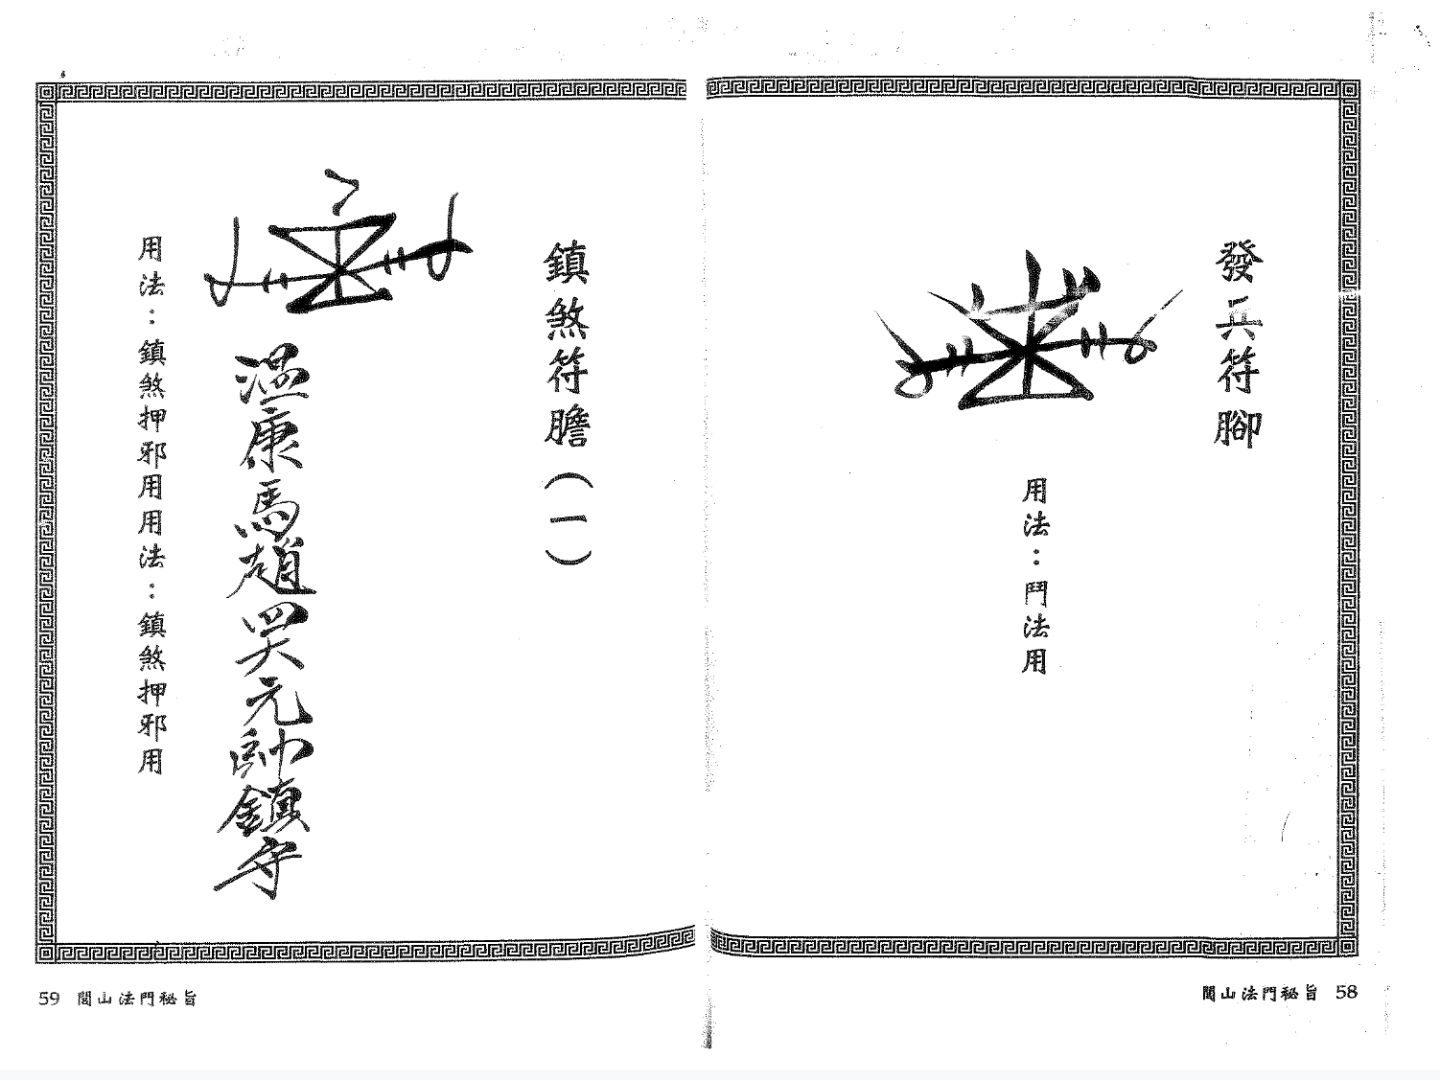 發兵符腳
用法：鬥法用
閭山法門秘旨 58
鎮煞符膽（一）
溫康馬趙四大元帥鎮守
用法：鎮煞押邪用用法：鎮煞押邪用
59 閭山法門秘旨